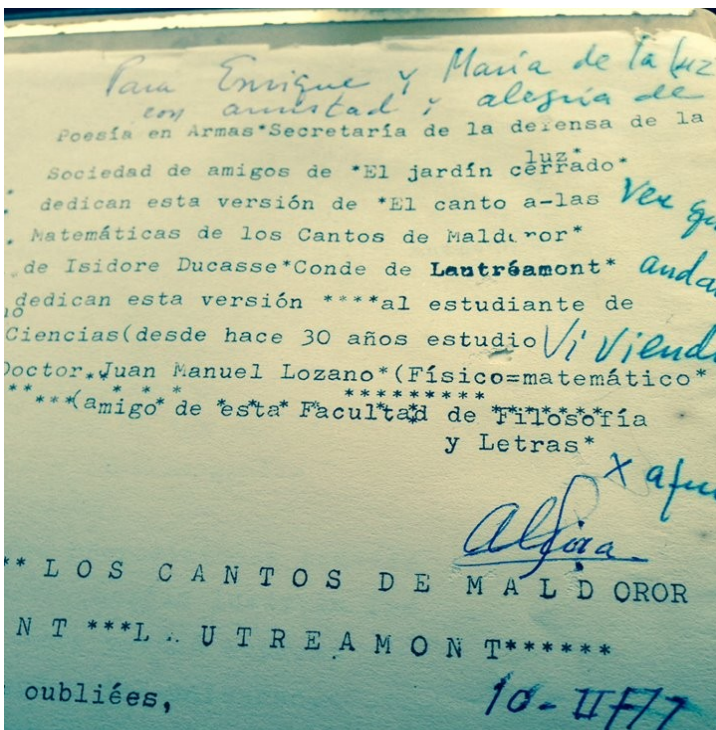 Para Enrique y María de la luz
con amistad y alegría de
Poesía en Armas*Secretaría de la defensa de la
luz*
Sociedad de amigos de *El jardín cerrado*
dedican esta versión de *El canto a-las
Ver que
Matemáticas de los Cantos de Maldoror*
de Isidore Ducasse*Conde de Lautréamont*
andan
dedican esta versión ****al estudiante de
Ciencias(desde hace 30 años estudio
Viviendo
Doctor.Juan Manuel Lozano*(Físico=matemático*
*****(amigo de esta Facultad de Filosofía
y Letras*
x afue
Alfira
** LOS CANTOS DE MALDOROR
NT ***L UTREAMONT******
oubliées,
10-II-77